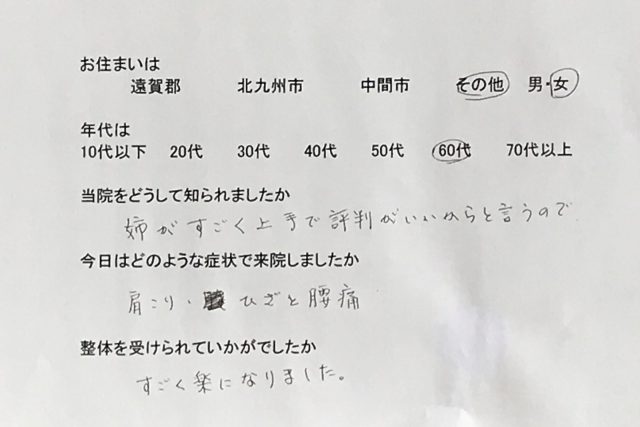 お住まいは
遠賀郡 北九州市 中間市 その他 男・女
年代は
10代以下 20代 30代 40代 50代 60代 70代以上
当院をどうして知られましたか
姉がすごく上手で評判がいいからと言うので
今日はどのような症状で来院しましたか
肩こり・ひざと腰痛
整体を受けられていかがでしたか
すごく楽になりました。